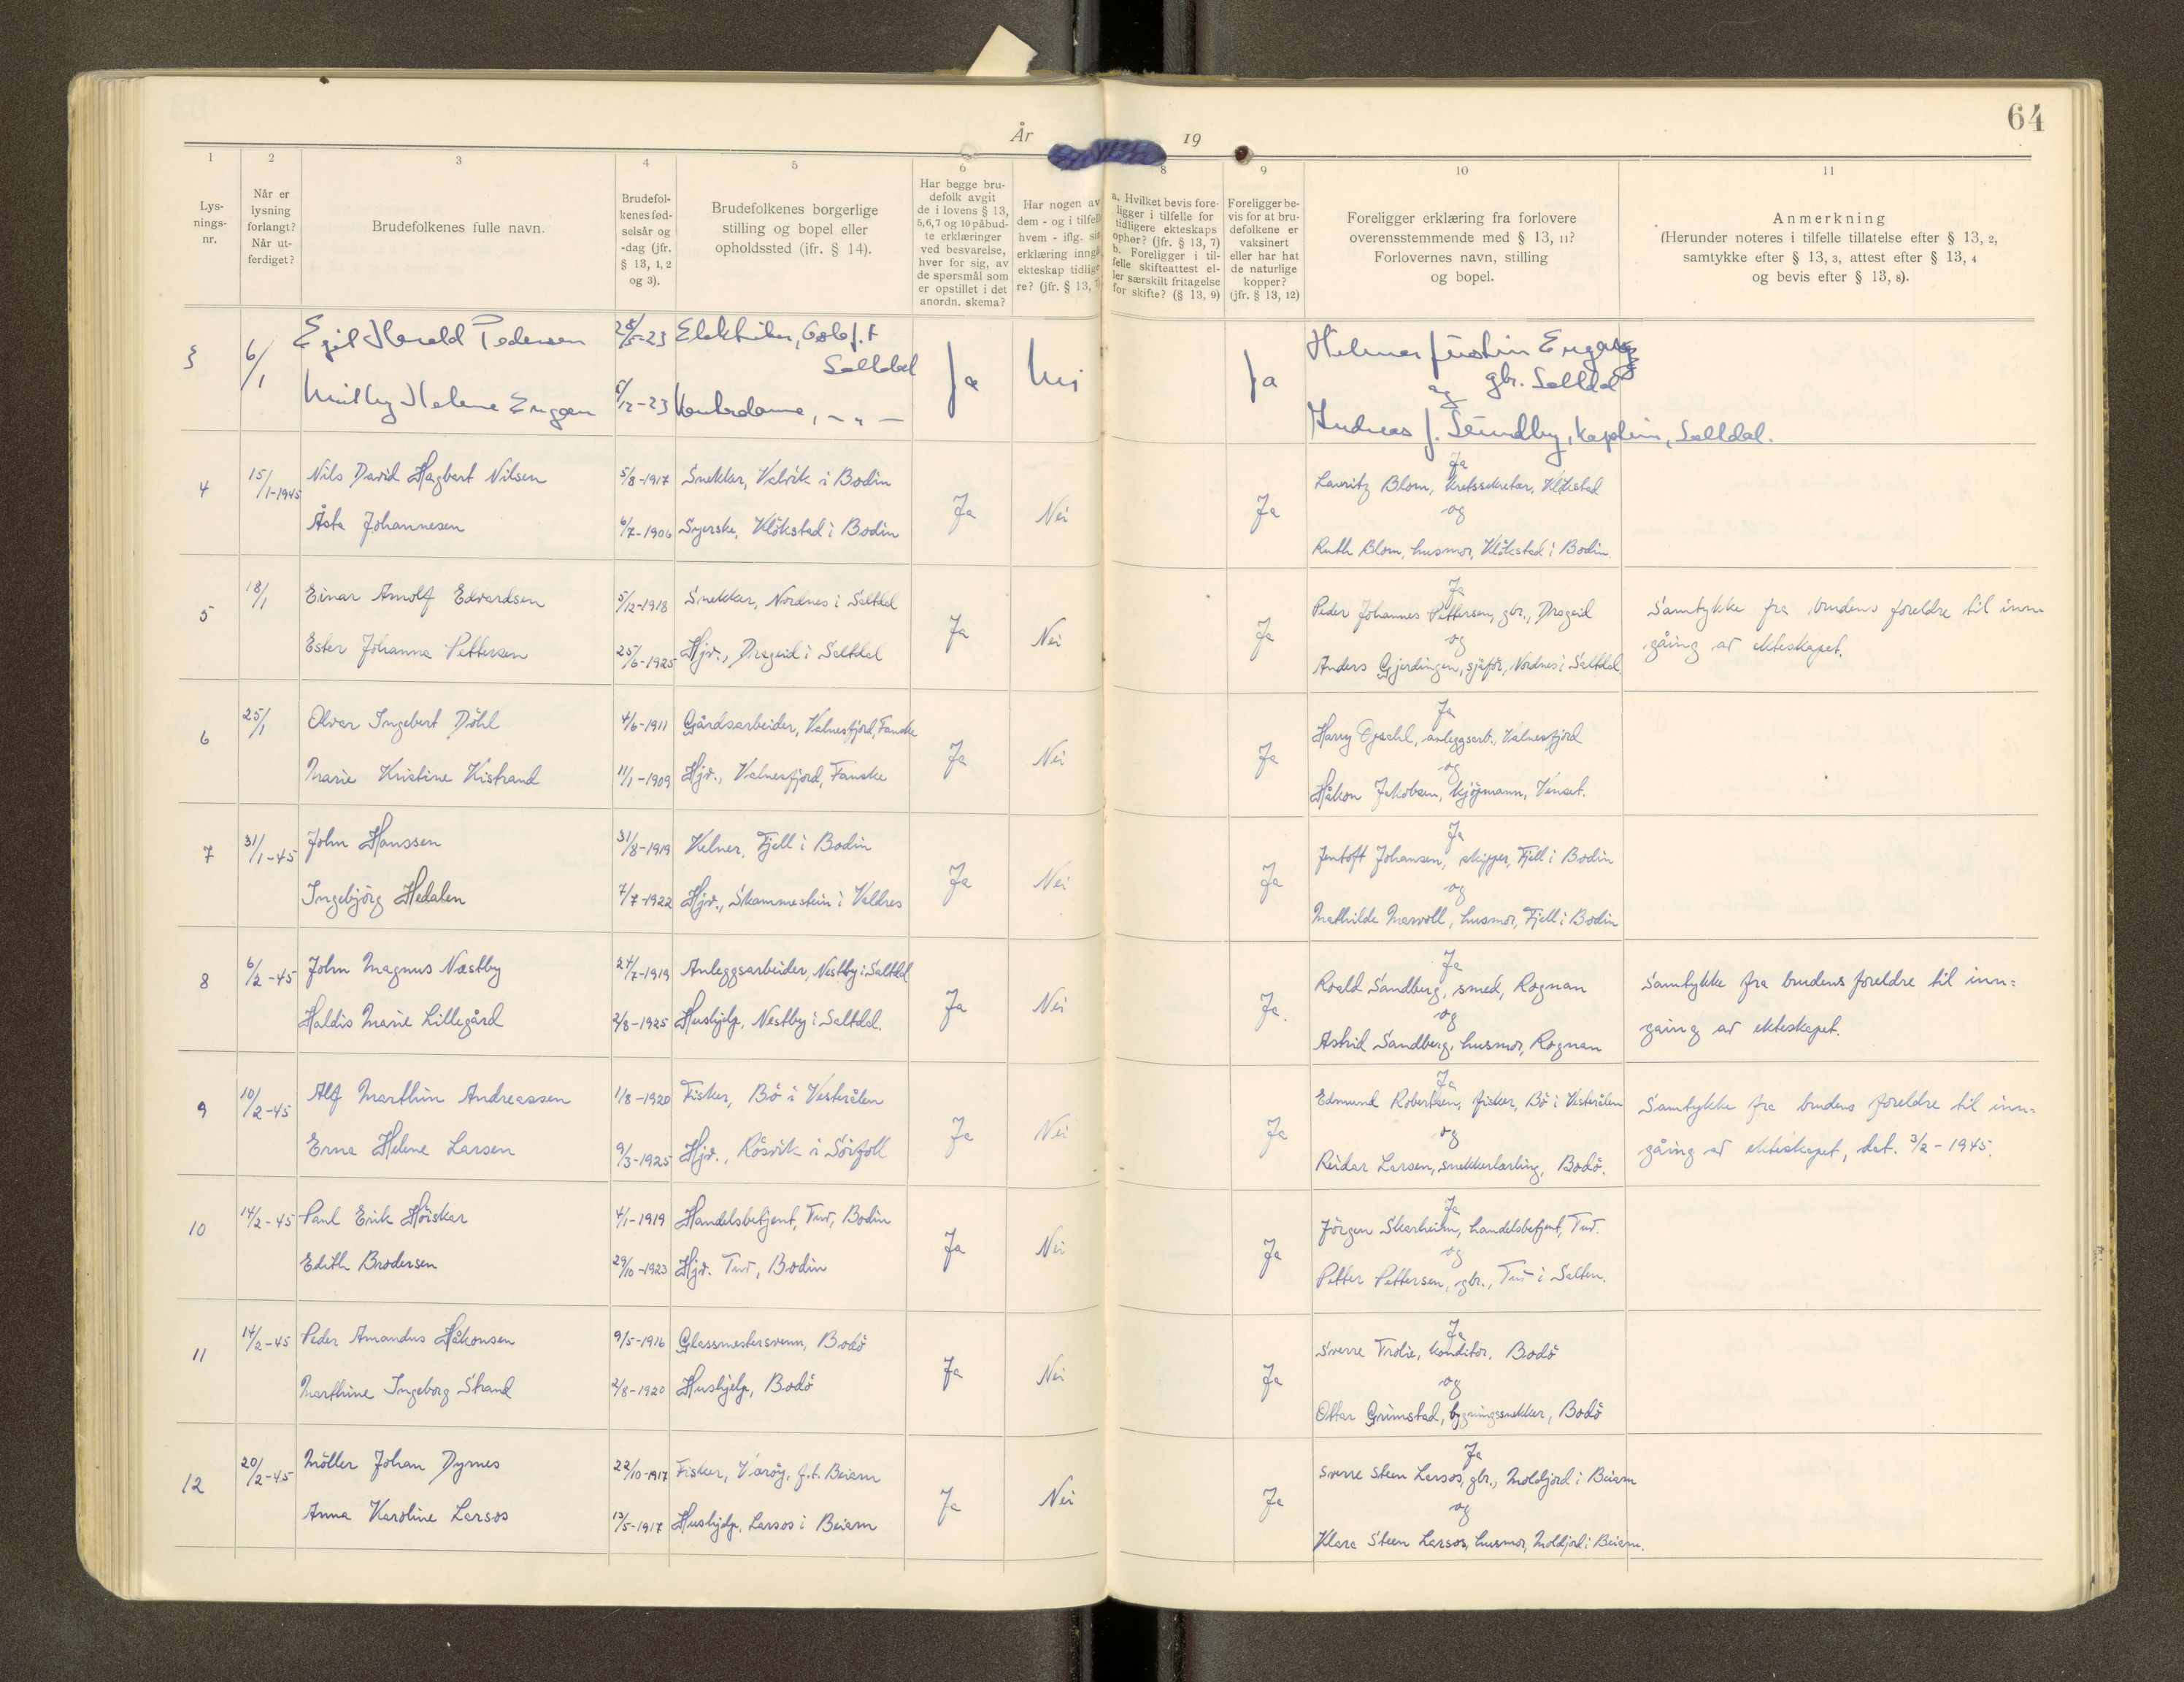 64
År 19
1 2 3 4 5 6 8 9 10 11
Lysningsnr.
Når er lysning forlangt? Når utferdiget?
Brudefolkenes fulle navn.
Brudefolkenes fødselsår og -dag (jfr. § 13, 1, 2 og 3).
Brudefolkenes borgerlige stilling og bopel eller opholdssted (ifr. § 14).
Har begge brudefolk avgit de i lovens § 13, 5, 6, 7 og 10 påbudte erklæringer ved besvarelse, hver for sig, av de spørsmål som er opstillet i det anordn. skema?
Har nogen av dem - og i tilfelle hvem - iflg. sin erklæring inngå ekteskap tidligere? (jfr. § 13, 7)
a. Hvilket bevis foreligger i tilfelle for tidligere ekteskaps ophør? (jfr. § 13, 7)
b. Foreligger i tilfelle skifteattest eller særskilt fritagelse for skifte? (§ 13, 9)
Foreligger bevis for at brudefolkene er vaksinert eller har hat de naturlige kopper? (jfr. § 13, 12)
Foreligger erklæring fra forlovere overensstemmende med § 13, 11? Forlovernes navn, stilling og bopel.
Anmerkning
(Herunder noteres i tilfelle tillatelse efter § 13, 2, samtykke efter § 13, 3, attest efter § 13, 4 og bevis efter § 13, 8).
3 6/1 Egil Harald Pedersen -23 Elektriker, Oslo f.t. Saltdal Ja Nei Ja
Helene Engan 6/12-23 Kontordame, - " -
Helmer Justin Engan gbr. Saltdal
og
Andreas J. Sundby, kaptein, Saltdal.
4 15/1-1945 Nils David Hagbart Nilsen 5/8-1917 Snekker, Valvik i Bodin Ja Nei Ja
Åsta Johannesen 6/7-1906 Syerske, Klökstad i Bodin
Ja
Lauritz Blom, kretssekretær, Klökstad
og
Ruth Blom, husmor, Klökstad i Bodin.
5 18/1 Einar Arnolf Edvardsen 5/12-1918 Snekker, Nordnes i Saltdal Ja Nei Ja
Ester Johanna Pettersen 25/6-1925 Hjv., Drageid i Saltdal
Ja
Peder Johannes Pettersen, gbr., Drageid
og
Anders Gjerdingen, sjåför, Nordnes i Saltdal
Samtykke fra brudens foreldre til inn=
gåing av ekteskapet.
6 25/1 Olvar Ingebert Döhl 4/6-1911 Gårdsarbeider, Valnesfjord, Fauske Ja Nei Ja
Marie Kristine Kistrand 11/1-1909 Hjv., Valnesfjord, Fauske
Ja
Harry anleggsarb., Valnesfjord
og
Håkon Jakobsen, kjöpmann, Venset.
7 31/1-45 John Hanssen 31/8-1919 Kelner, Fjell i Bodin Ja Nei Ja
Ingebjörg Hedalen 7/7-1922 Hjv., Skammestein i Valdres
Ja
Jentoft Johansen, skipper, Fjell i Bodin
og
Mathilde Marvoll, husmor, Fjell i Bodin
8 6/2-45 John Magnus Næstby 24/7-1919 Anleggsarbeider, Nestby i Saltdal Ja Nei Ja.
Haldis Marie Lillegård 2/8-1925 Hushjelp, Nestby i Saltdal.
Ja
Roald Sandberg, smed, Rognan
og
Astrid Sandberg, husmor, Rognan
Samtykke fra brudens foreldre til inn=
gåing av ekteskapet.
9 10/2-45 Alf Marthin Andreassen 1/8-1920 Fisker, Bö i Vesterålen Ja Nei Ja
Erna Helene Larsen 9/3-1925 Hjv., Rösvik i Sörfoll
Ja
Edmund Robertsen, fisker, Bö i Vesterålen
og
Reidar Larsen, snekkerlærling, Bodö.
Samtykke fra brudens foreldre til inn=
gåing av ekteskapet, dat. 3/2-1945.
10 14/2-45 Paul Erik Höiskar 4/1-1919 Handelsbetjent, Tuv, Bodin Ja Nei Ja
Edith Brodersen 29/10-1923 Hjv. Tuv, Bodin
Ja
Jörgen Skarheim, handelsbetjent, Tuv.
og
Petter Pettersen, gbr., Tuv i Salten.
11 14/2-45 Peder Amandus Håkonsen 9/5-1916 Glassmestersvenn, Bodö Ja Nei Ja
Marthine Ingeborg Strand 2/8-1920 Hushjelp, Bodö
Ja
Sverre Trolie, konditor, Bodö
og
Ottar Grimstad, bygningssnekker, Bodö
12 20/2-45 Möller Johan Dyrnes 22/10-1917 Fisker, Væröy, f.t. Beiarn Ja Nei Ja
Anna Karoline Larsos 13/5-1917 Hushjelp, Larsos i Beiarn
Ja
Sverre Steen Larsos, gbr., Moldjord i Beiarn
og
Klara Steen Larsos, husmor, Moldjord i Beiarn.